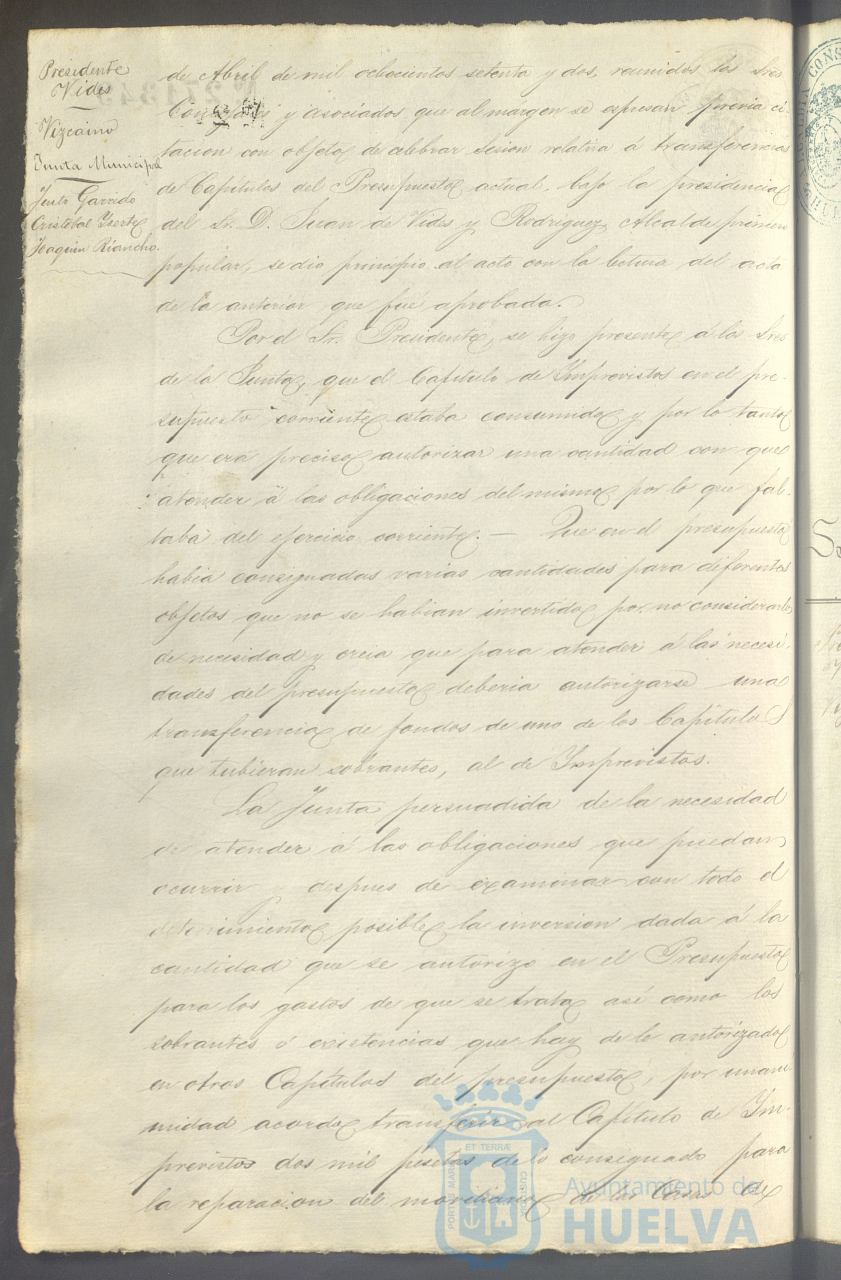 Presidente
Vides
Vizcaino
Junta Municipal
Justo Garrido
Cristóbal Yserte
Joaquin Riancho.
de Abril de mil ochocientos setenta y dos, reunidos los Sres
Concejales y asociados, que al margen se espresan previa ci-
tacion con objeto de celebrar Sesion relativa á transferencias
de Capítulos del Presupuesto actual, bajo la presidencia
del Sr. D. Juan de Vides y Rodriguez, Alcalde primero
popular, se dio principio al acto con la lectura del acta
de la anterior que fué aprobada.
Por el Sr. Presidente, se hizo presente á los Sres
de la Junta, que el Capítulo de Imprevistos en el pre-
supuesto corriente estaba consumido y por lo tanto
que era preciso autorizar una cantidad con que
atender á las obligaciones del mismo por lo que fal-
taba del ejercicio corriente. — Que en el presupuesto
habia consignadas varias cantidades para diferentes
objetos que no se habian invertido por no considerarlo
de necesidad y creia que para atender á las necesi-
dades del presupuesto deberia autorizarse una
transferencia de fondos de uno de los Capítulos
que tubieran sobrantes, al de Imprevistos.
La Junta persuadida de la necesidad
de atender á las obligaciones que puedan
ocurrir y despues de examinar con todo el
detenimiento posible la inversion dada á la
cantidad que se autorizo en el Presupuesto
para los gastos de que se trata así como los
sobrantes ó existencias que hay de lo autorizado
en otros Capítulos del presupuesto, por unani
midad acordo transferir al Capítulo de Im-
previstos dos mil pesetas de lo consignado para
la reparacion del moviliario de las Casas de
Ayuntamiento de
HUELVA
PORTUS MARIS ET TERRÆ CUSTODIA